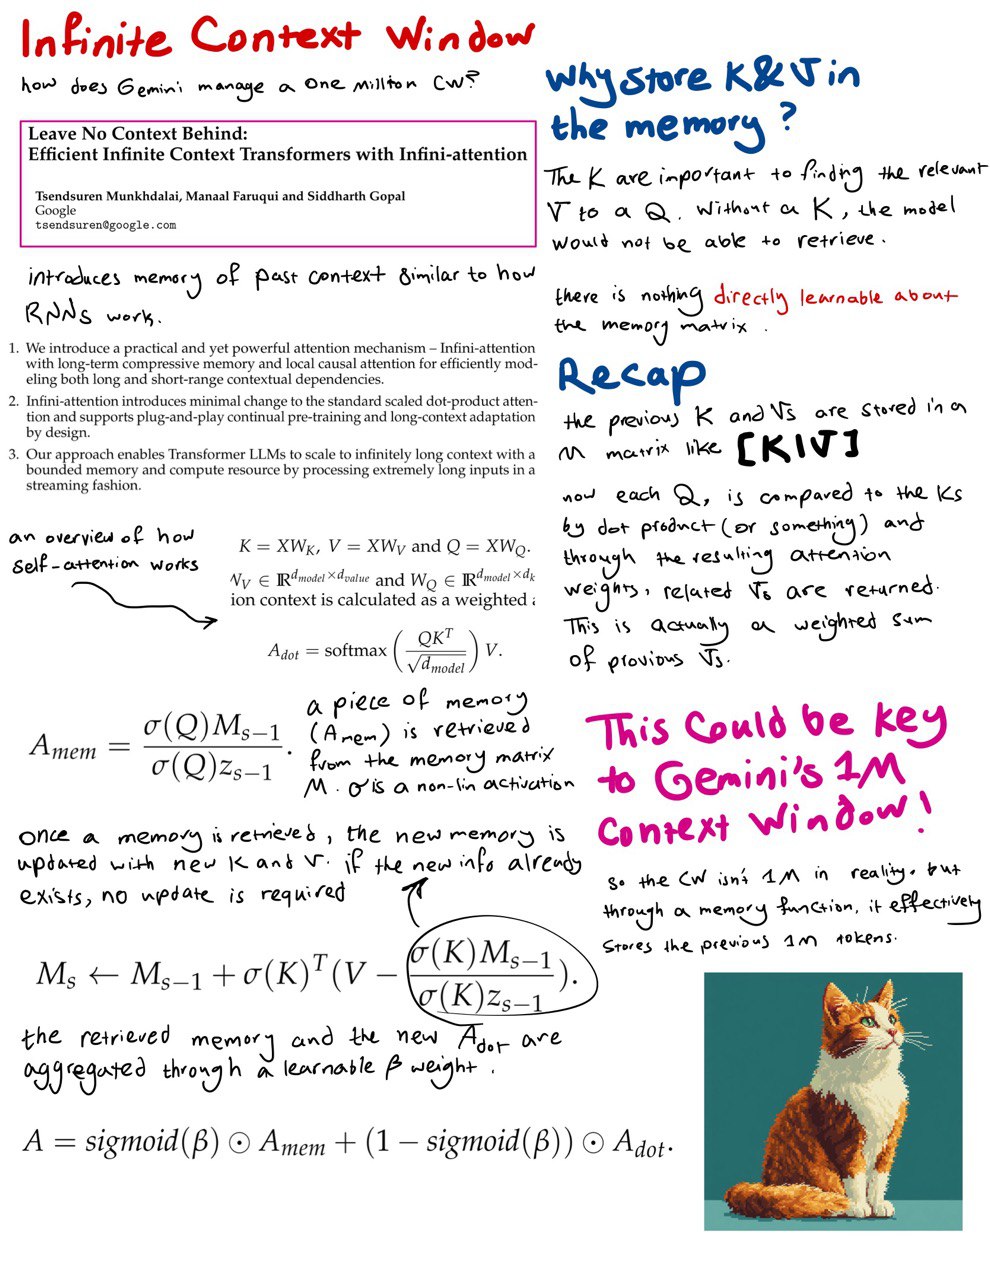 Infinite Context Window
how does Gemini manage a one million CW?
Leave No Context Behind:
Efficient Infinite Context Transformers with Infini-attention
Tsendsuren Munkhdalai, Manaal Faruqui and Siddharth Gopal
Google
tsendsuren@google.com
introduces memory of past context similar to how
RNNs work.
1. We introduce a practical and yet powerful attention mechanism – Infini-attention
with long-term compressive memory and local causal attention for efficiently mod-
eling both long and short-range contextual dependencies.
2. Infini-attention introduces minimal change to the standard scaled dot-product atten-
tion and supports plug-and-play continual pre-training and long-context adaptation
by design.
3. Our approach enables Transformer LLMs to scale to infinitely long context with a
bounded memory and compute resource by processing extremely long inputs in a
streaming fashion.
an overview of how
self-attention works
K = XW_K, V = XW_V and Q = XW_Q.
W_V ∈ ℝ^{d_{model}×d_{value}} and W_Q ∈ ℝ^{d_{model}×d_k}
ion context is calculated as a weighted
A_{dot} = softmax (QK^T / √d_{model}) V.
A_{mem} = σ(Q)M_{s−1} / σ(Q)z_{s−1}.
a piece of memory
(A_{mem}) is retrieved
from the memory matrix
M. σ is a non-lin activation
once a memory is retrieved, the new memory is
updated with new K and V. if the new info already
exists, no update is required
M_s ← M_{s−1} + σ(K)^T(V − σ(K)M_{s−1} / σ(K)z_{s−1}).
the retrieved memory and the new A_{dot} are
aggregated through a learnable β weight.
A = sigmoid(β) ⊙ A_{mem} + (1 − sigmoid(β)) ⊙ A_{dot}.
Why store K & V in
the memory?
The K are important to finding the relevant
V to a Q. Without a K, the model
would not be able to retrieve.
there is nothing directly learnable about
the memory matrix.
Recap
the previous K and Vs are stored in a
M matrix like [K|V]
now each Q, is compared to the Ks
by dot product (or something) and
through the resulting attention
weights, related Vs are returned.
This is actually a weighted sum
of provious Vs.
This Could be key
to Gemini's 1M
Context Window!
so the CW isn't 1M in reality. but
through a memory function, it effectively
stores the previous 1M tokens.